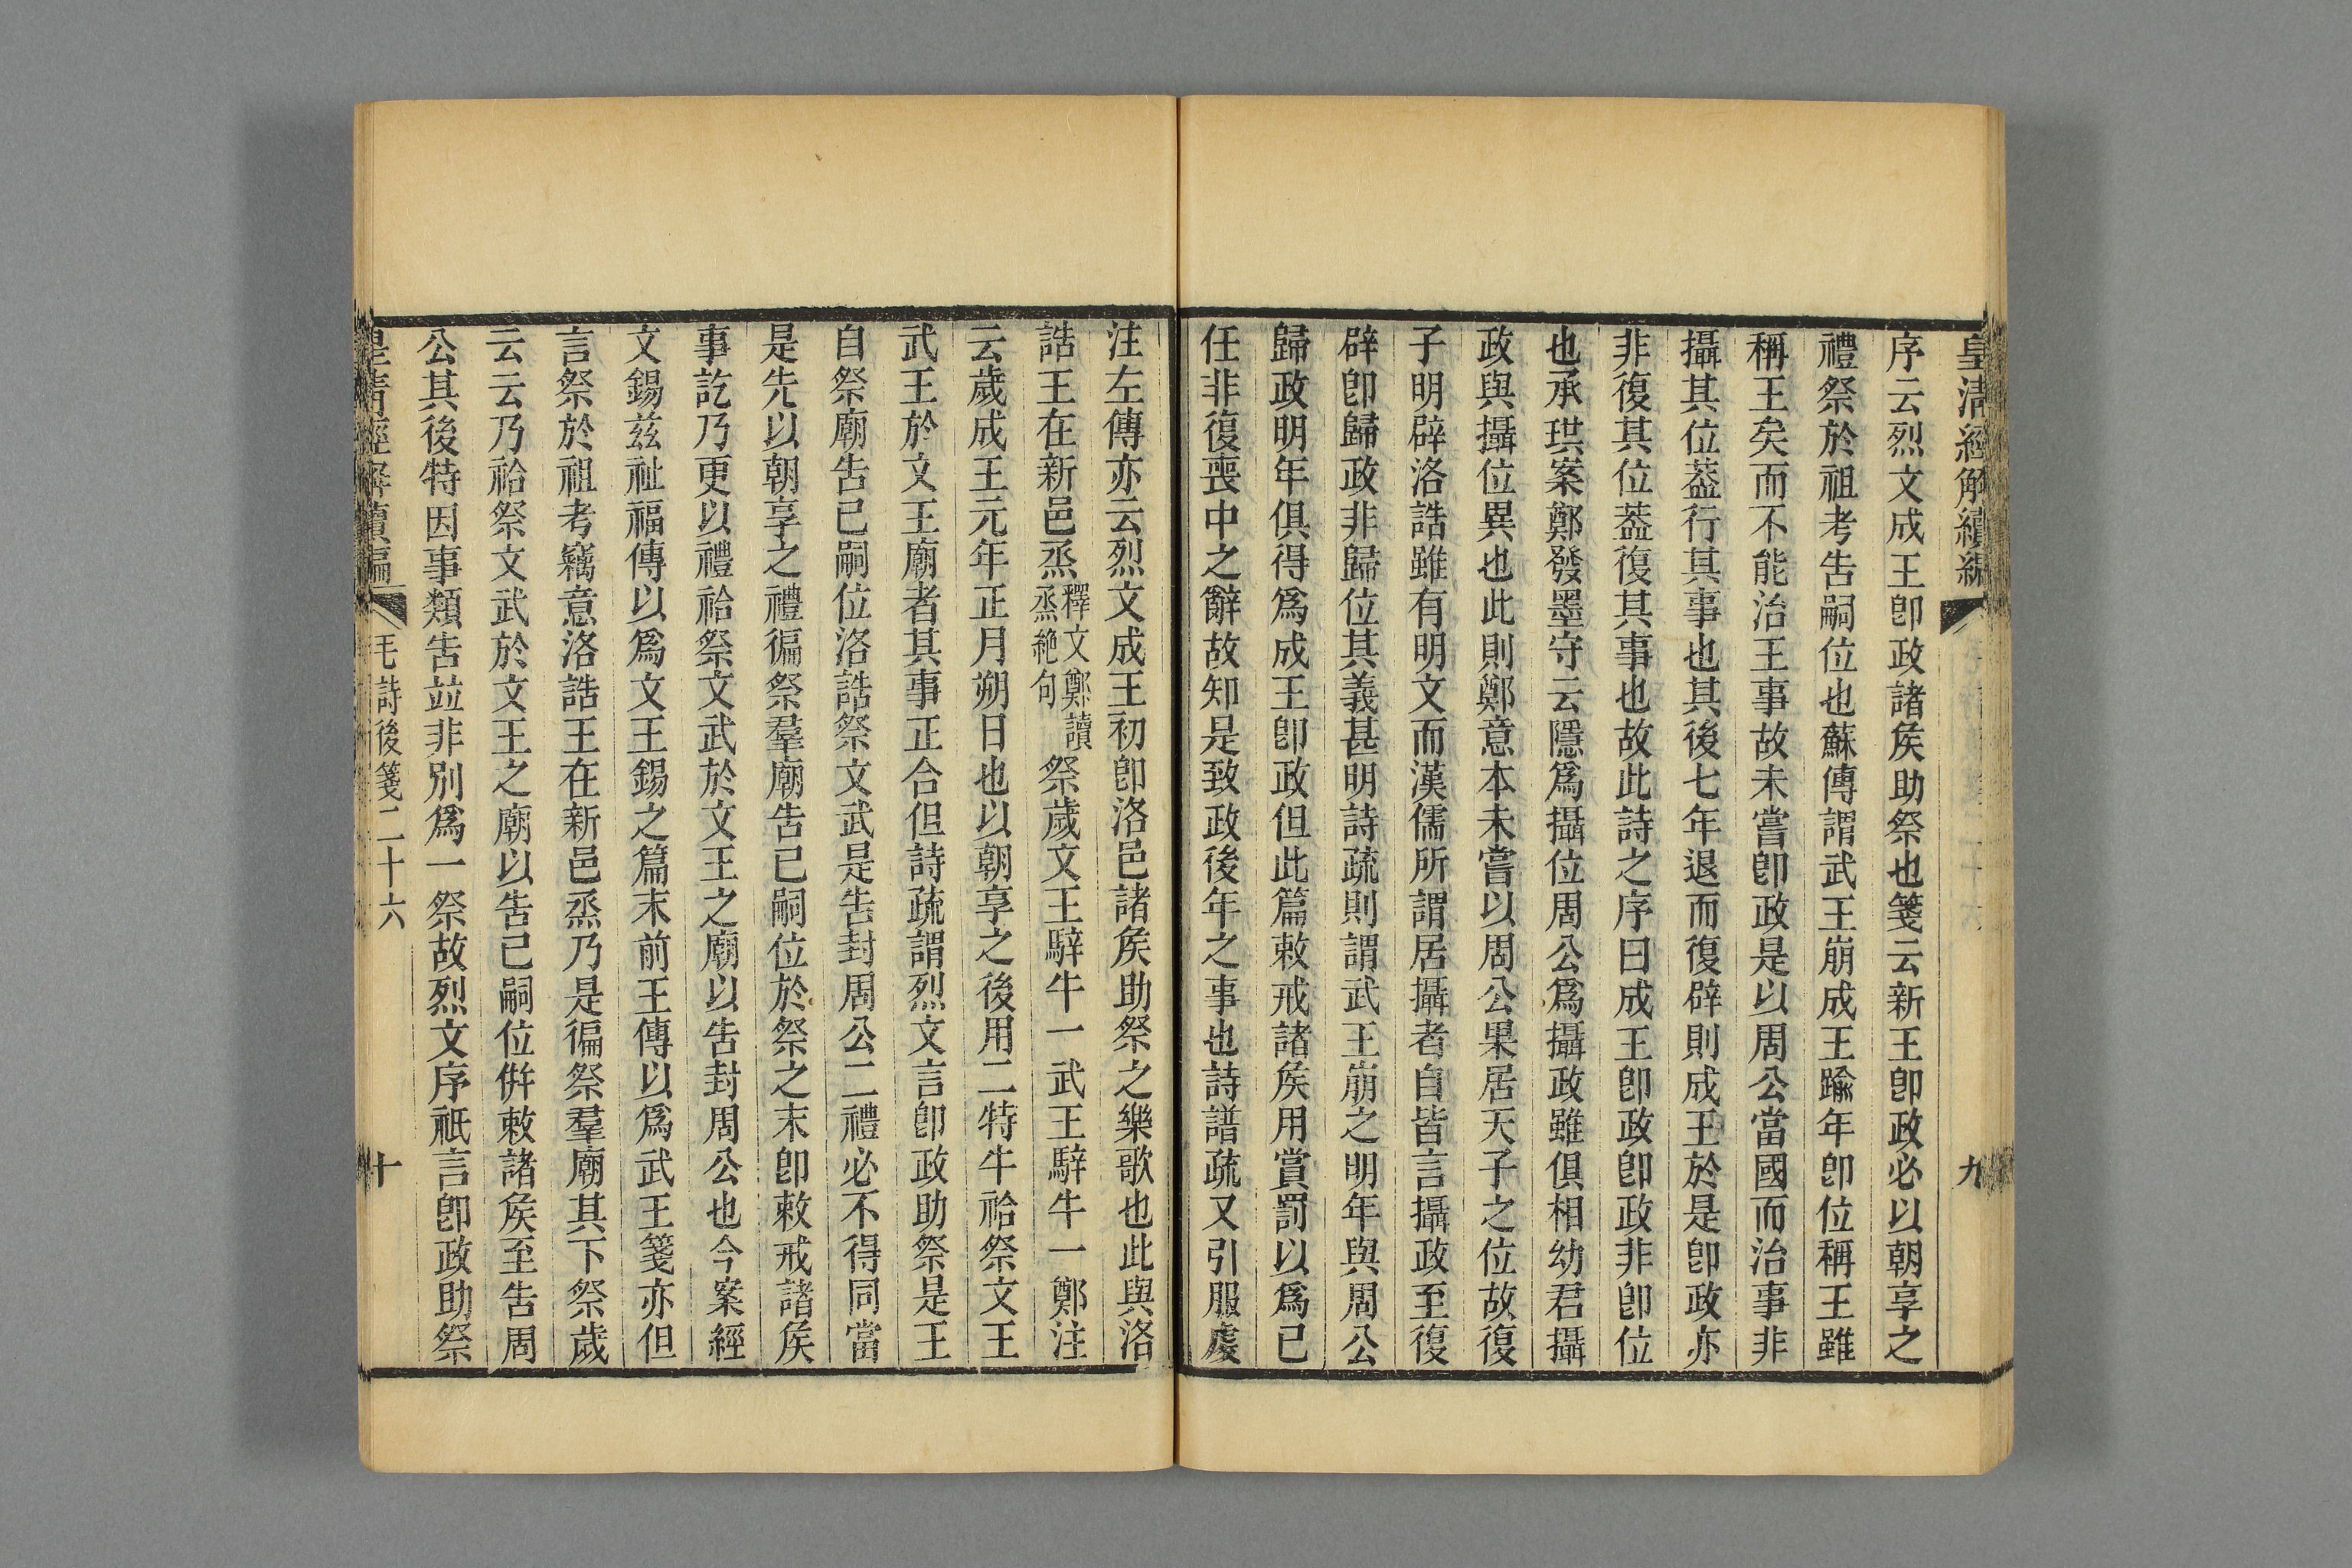 皇清經解續編
九
序云烈文成王卽政諸矦助祭也箋云新王卽政必以朝享之
禮祭於祖考告嗣位也蘇傳謂武王崩成王踰年卽位稱王雖
稱王矣而不能治王事故未嘗卽政是以周公當國而治事非
攝其位葢行其事也其後七年退而復辟則成王於是卽政亦
非復其位葢復其事也故此詩之序曰成王卽政卽政非卽位
也承珙案鄭發墨守云隱爲攝位周公爲攝政雖俱相幼君攝
政與攝位異也此則鄭意本未嘗以周公果居天子之位故復
子明辟洛誥雖有明文而漢儒所謂居攝者自皆言攝政至復
辟卽歸政非歸位其義甚明詩疏則謂武王崩之明年與周公
歸政明年俱得爲成王卽政但此篇敕戒諸矦用賞罰以爲已
任非復喪中之辭故知是致政後年之事也詩譜疏又引服虔
注左傳亦云烈文成王初卽洛邑諸矦助祭之樂歌也此與洛
誥王在新邑烝釋文鄭讀烝絶句祭歲文王騂牛一武王騂牛一鄭注
云歲成王元年正月朔日也以朝享之後用二特牛祫祭文王
武王於文王廟者其事正合但詩疏謂烈文言卽政助祭是王
自祭廟告已嗣位洛誥祭文武是告封周公二禮必不得同當
是先以朝享之禮徧祭羣廟告已嗣位於祭之末卽敕戒諸矦
事訖乃更以禮祫祭文武於文王之廟以告封周公也今案經
文錫茲祉福傳以爲文王錫之篇末前王傳以爲武王箋亦但
言祭於祖考竊意洛誥王在新邑烝乃是徧祭羣廟其下祭歲
云云乃祫祭文武於文王之廟以告已嗣位倂敕諸矦至告周
公其後特因事類告竝非別爲一祭故烈文序祗言卽政助祭
皇清經解續編
毛詩後箋二十六
十